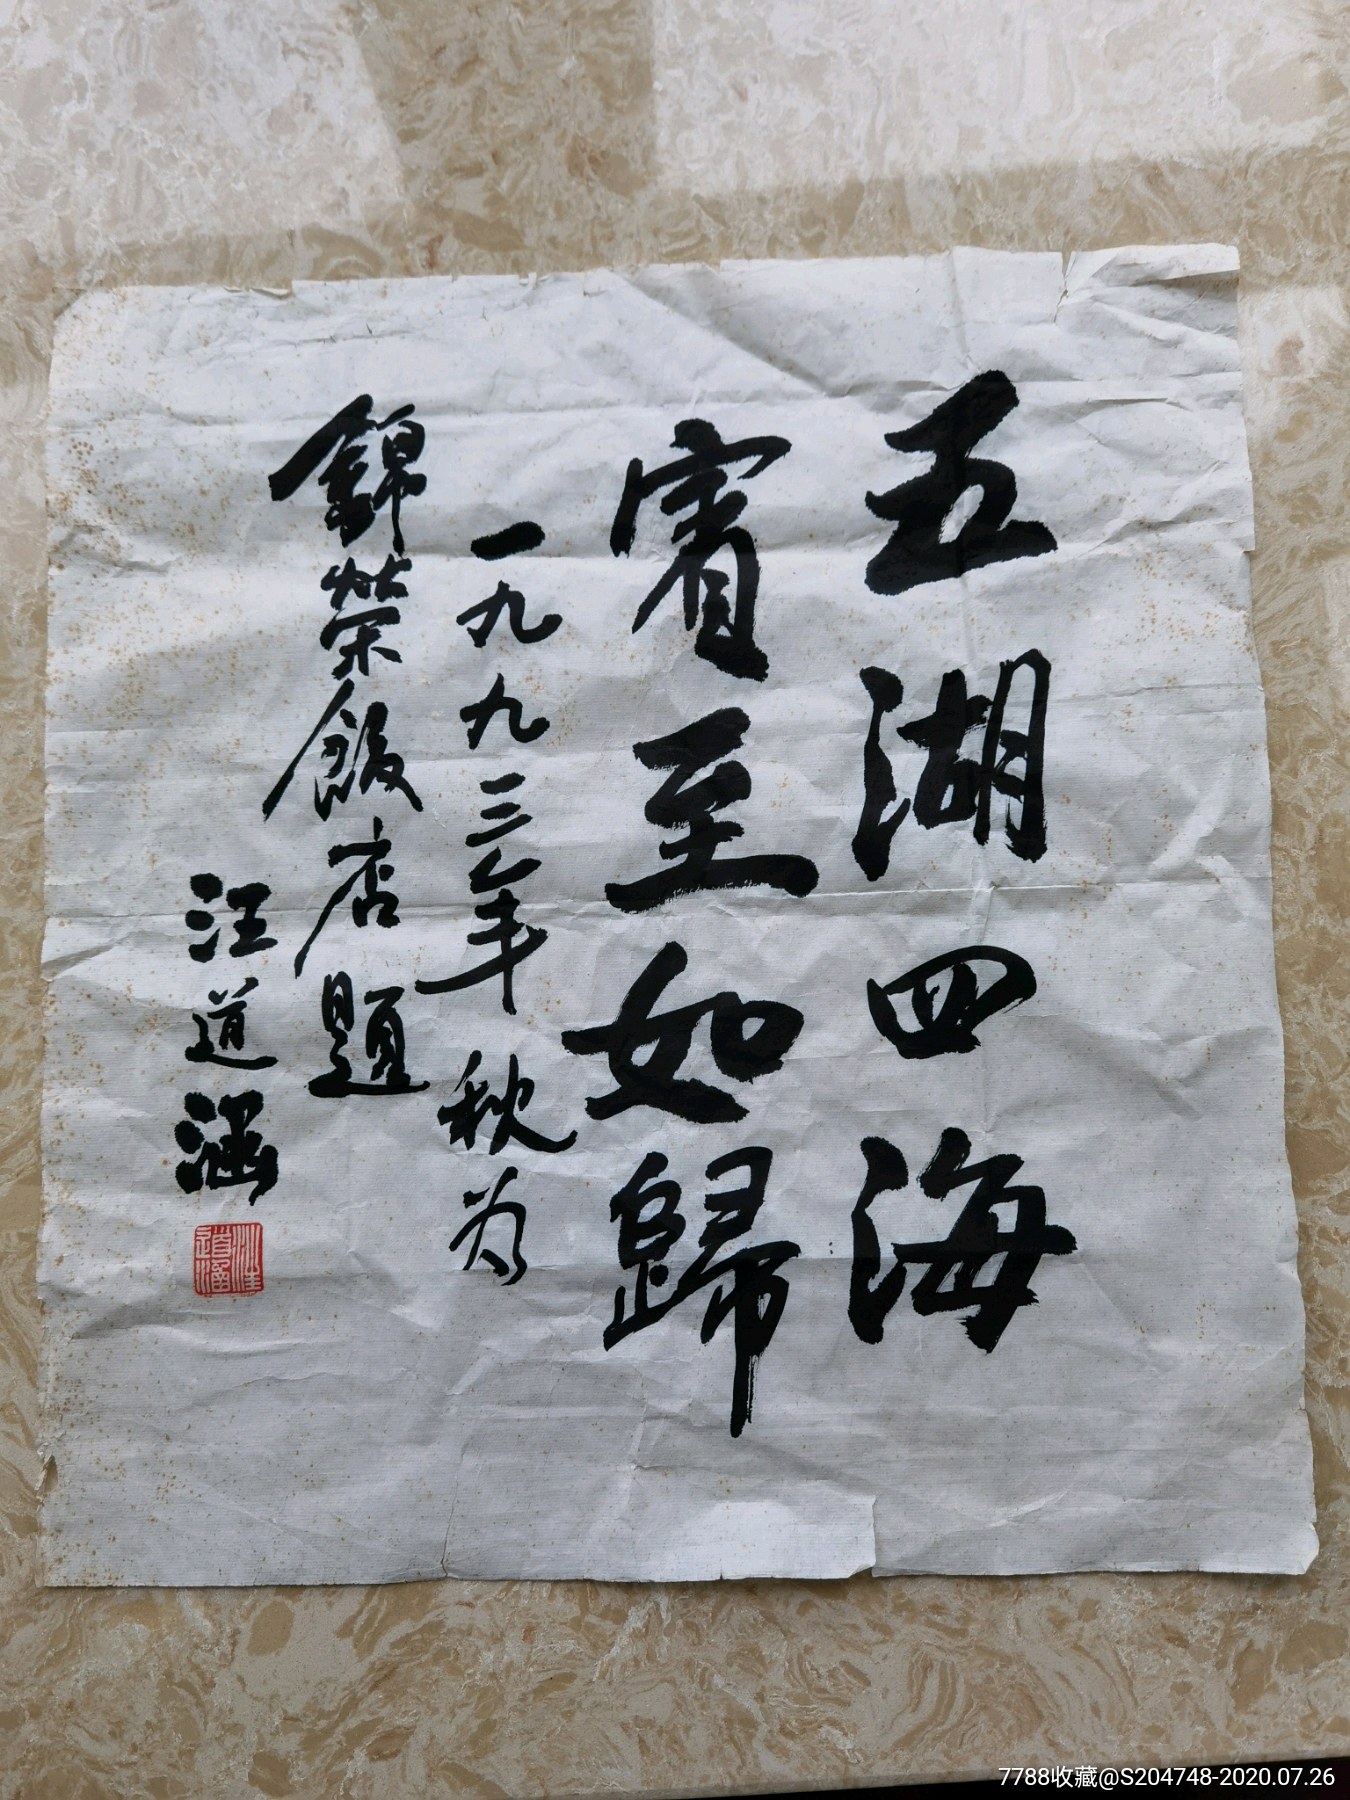 五湖四海
賓至如歸
一九九三年秋为
錦榮飯店題
汪道涵
汪道涵
7788收藏@S204748-2020.07.26